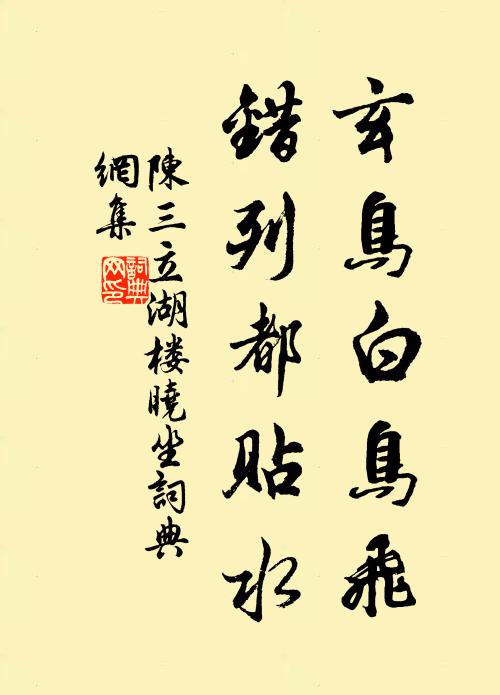 玄鳥白鳥飛
錯列都貼水
陳三立湖楼曉坐詞典
網集
詞典網印